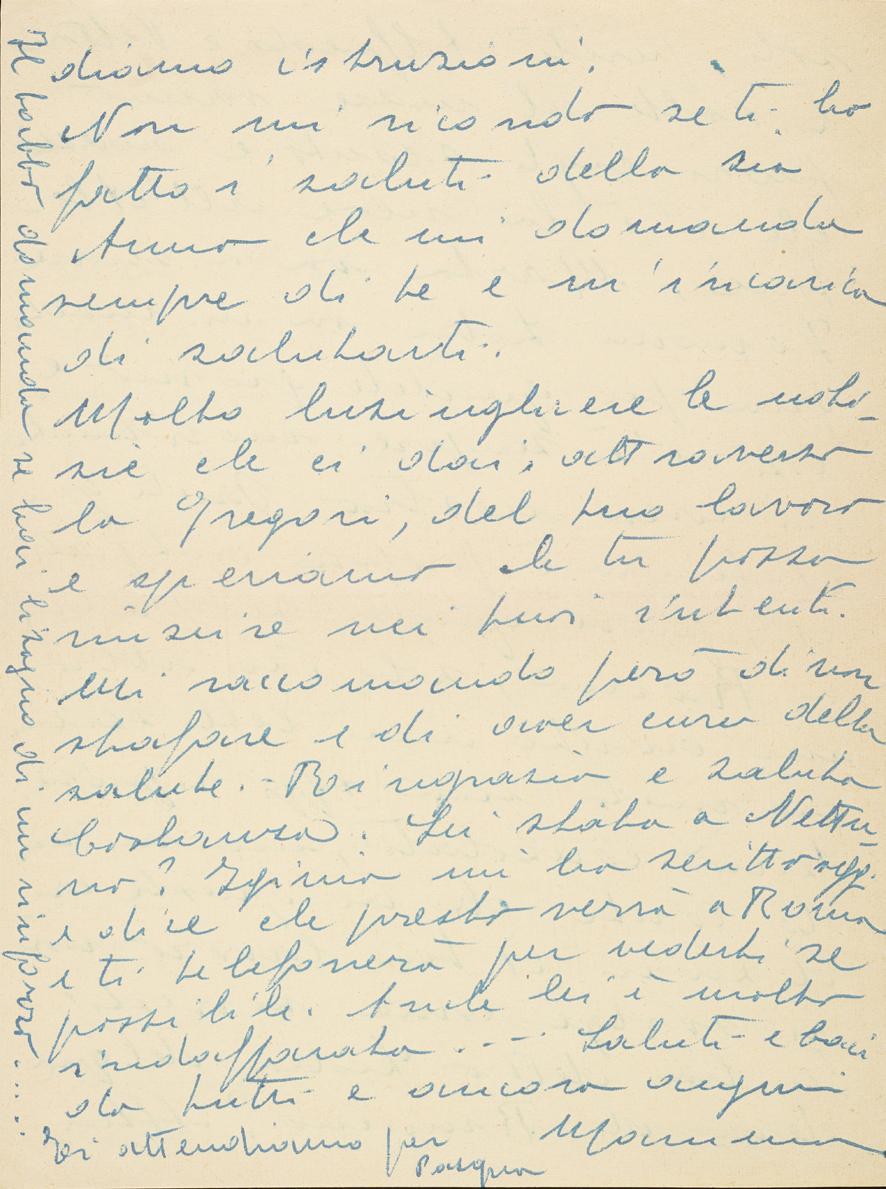 diamo istruzioni.
Non mi ricordo se ti ho
fatto i saluti della zia
Anna che mi domanda
sempre di te e m'incarica
di salutarti.
Molto lusinghiere le noti-
zie che ci dai, attraverso
la Gregori, del tuo lavoro
e speriamo che tu possa
riuscire nei tuoi intenti.
Mi raccomando però di non
strafare e di aver cura della
salute. - Ringrazia e saluta
Costanza. Sei stata a Nettu-
no? Iginia mi ha scritto oggi
e dice che presto verrà a Roma
e ti telefonerà per vederti se
possibile. Anche lei è molto
indaffarata .... Saluti e baci
da tutti e ancora auguri
Mamma
Ti attendiamo per
Pasqua
Il babbo domanda se hai bisogno di un rinforzo .....